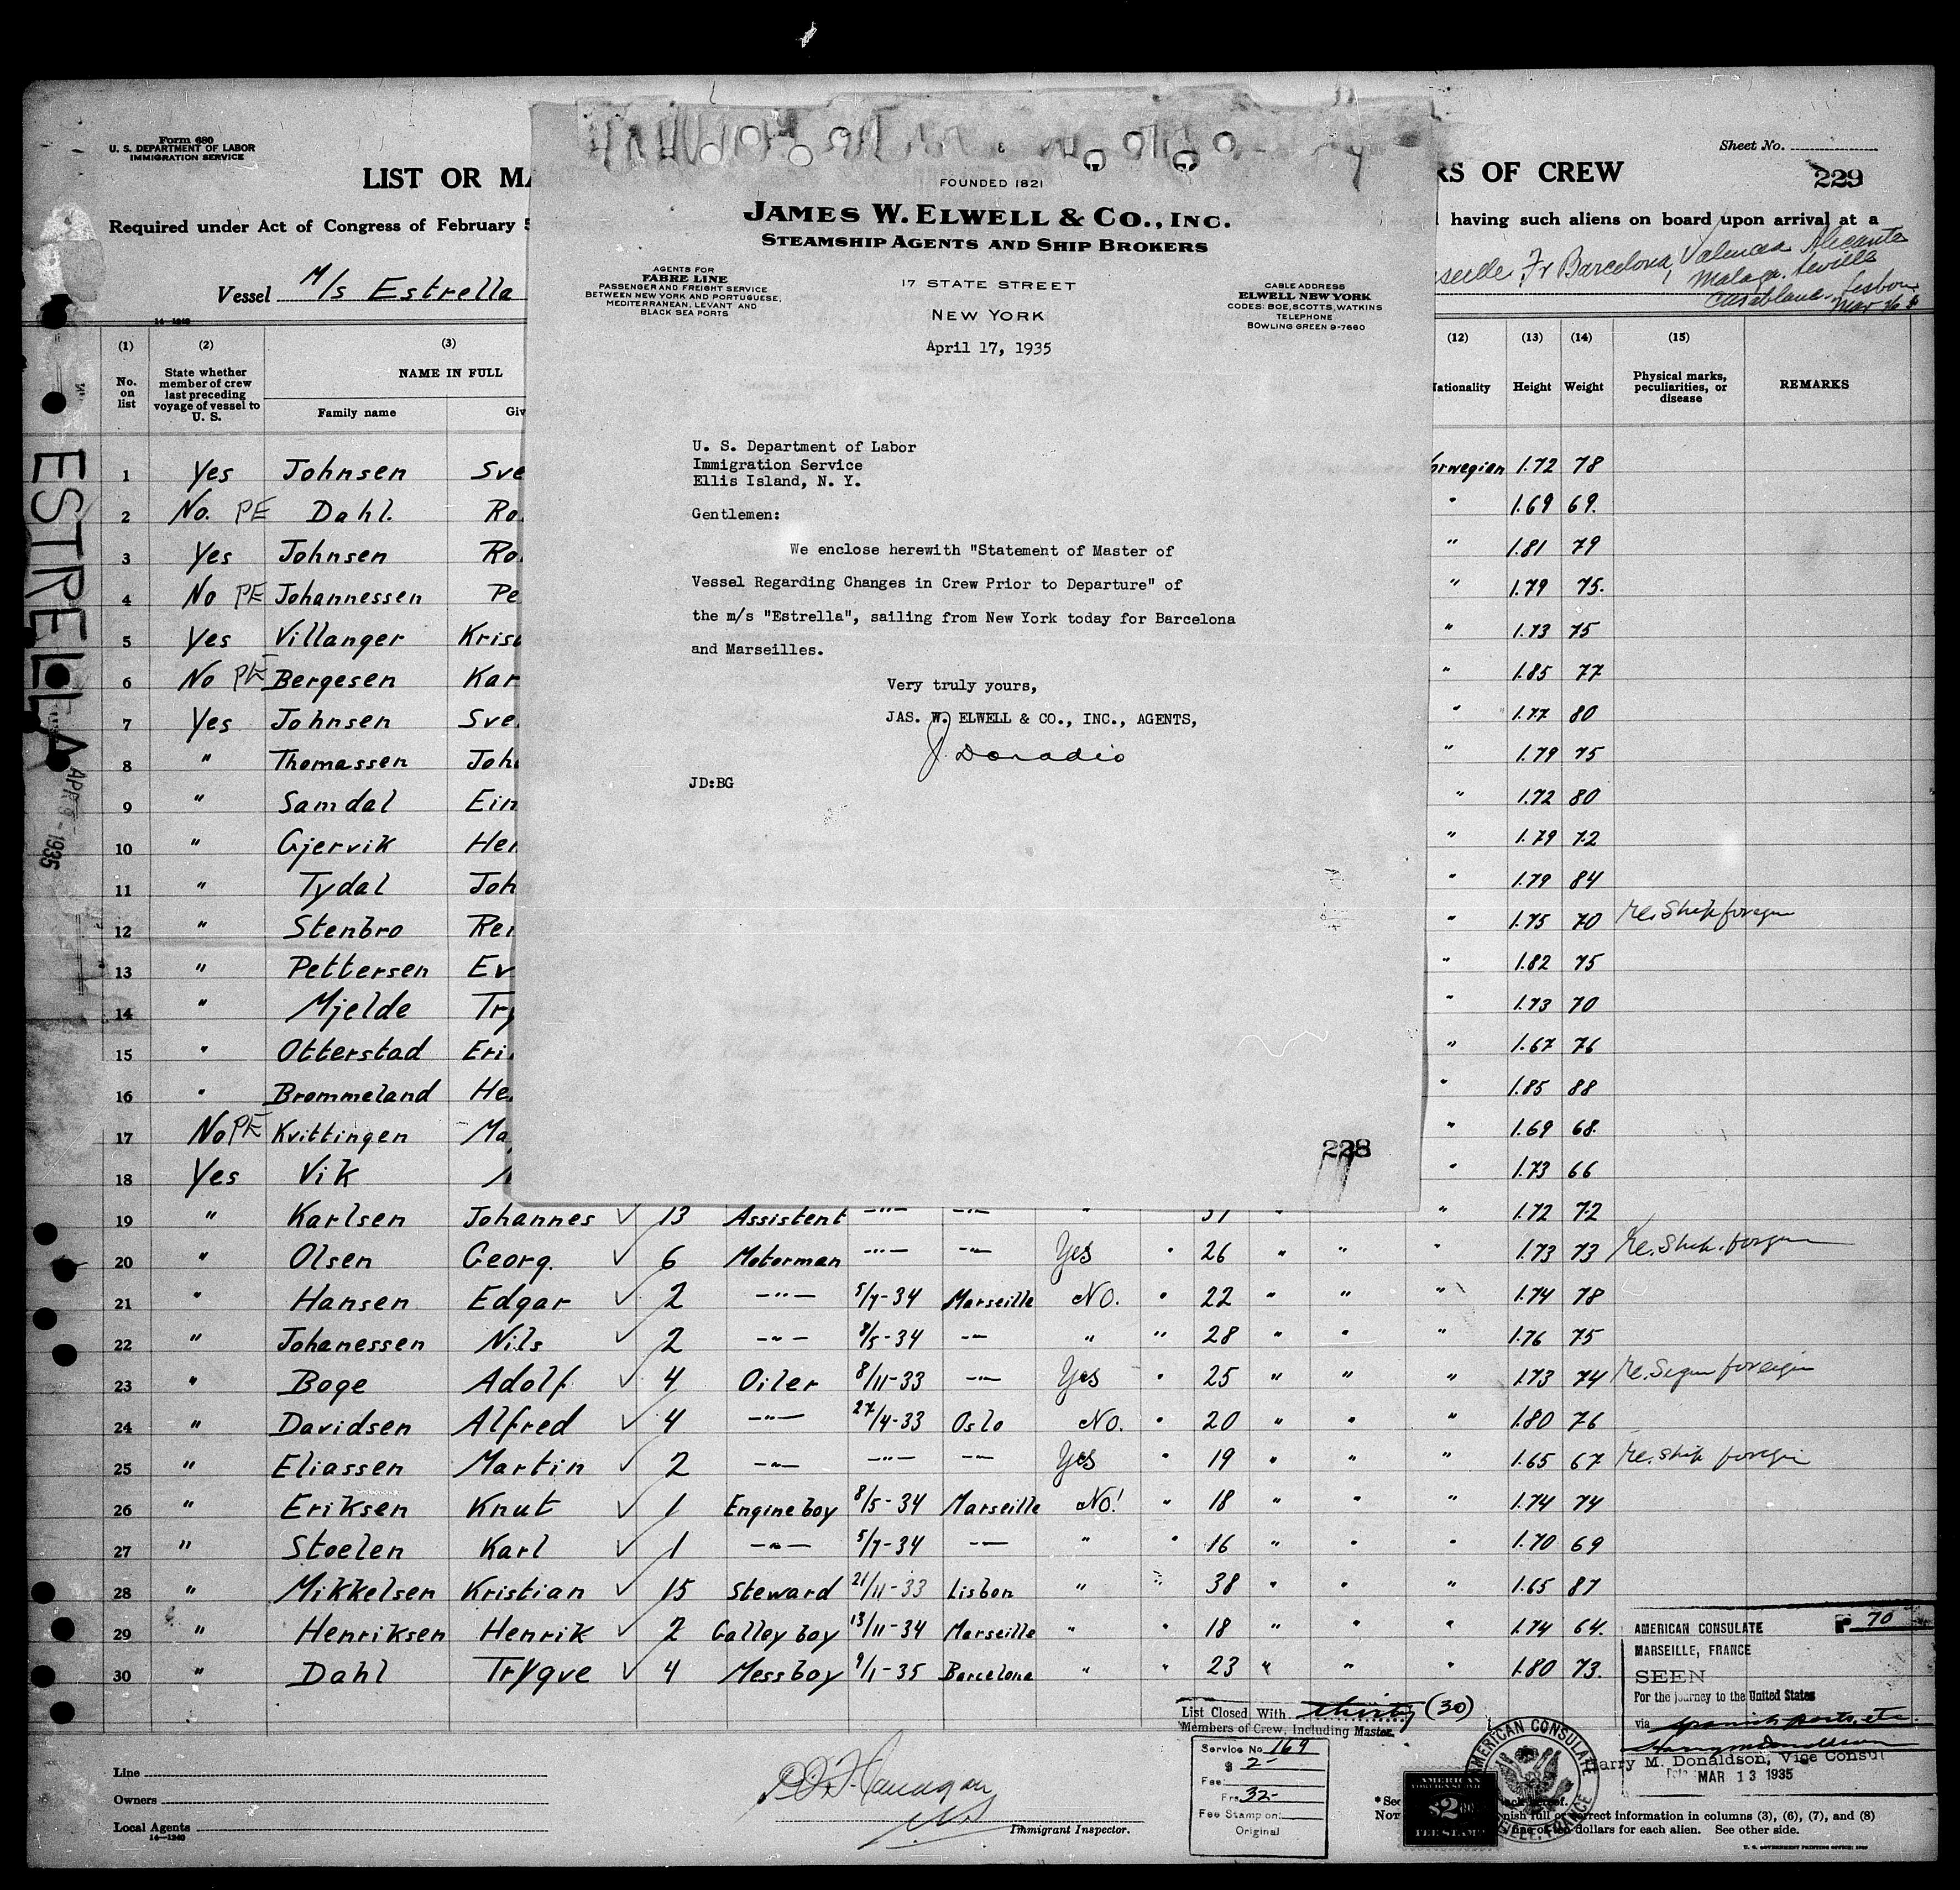 Form 680
U. S. DEPARTMENT OF LABOR
IMMIGRATION SERVICE
Sheet No.
229
LIST OR MA
RS OF CREW
Required under Act of Congress of February 5
having such aliens on board upon arrival at a
Vessel M/s Estrella
seille Fr Barcelona, Valencia Alicante
Malaga. Sevilla
Casablanca. Lisbon
Mar 26
14—1240
FOUNDED 1821
JAMES W. ELWELL & CO., INC.
STEAMSHIP AGENTS AND SHIP BROKERS
AGENTS FOR
FABRE LINE
PASSENGER AND FREIGHT SERVICE
BETWEEN NEW YORK AND PORTUGUESE,
MEDITERRANEAN, LEVANT AND
BLACK SEA PORTS
17 STATE STREET
NEW YORK
CABLE ADDRESS
ELWELL NEW YORK
CODES: BOE, SCOTTS, WATKINS
TELEPHONE
BOWLING GREEN 9-7660
April 17, 1935
U. S. Department of Labor
Immigration Service
Ellis Island, N. Y.
Gentlemen:
We enclose herewith "Statement of Master of
Vessel Regarding Changes in Crew Prior to Departure" of
the m/s "Estrella", sailing from New York today for Barcelona
and Marseilles.
Very truly yours,
JAS. W. ELWELL & CO., INC., AGENTS,
J. Donadio
JD:BG
228
(1) (2) (3) (12) (13) (14) (15)
No. on list
State whether member of crew last preceding voyage of vessel to U. S.
NAME IN FULL
Family name Giv
Nationality Height Weight
Physical marks, peculiarities, or disease
REMARKS
ESTRELLA
APR 1935
1 Yes Johnsen Sve orwegian 1.72 78
2 No. PE Dahl. Ro. " 1.69 69.
3 Yes Johnsen Ro. " 1.81 79
4 No PE Johannessen Pe " 1.79 75.
5 Yes Villanger Kris " 1.73 75
6 No PE Bergesen Kar " 1.85 77
7 Yes Johnsen Sve. " 1.77 80
8 " Thomassen Joh " 1.79 75
9 " Samdal Ein " 1.72 80
10 " Gjervik Her " 1.79 72
11 " Tydal Joh " 1.79 84
12 " Stenbro Rei " 1.75 70 Re. Ship foreign
13 " Pettersen Ev " 1.82 75
14 " Mjelde Try " 1.73 70
15 " Otterstad Eri. " 1.67 76
16 " Brommeland He. " 1.85 88
17 No PE Kvittingen Ma " 1.69 68.
18 Yes Vik " 1.73 66
19 " Karlsen Johannes ✓ 13 Assistent —"— —"— " 31 " " " 1.72 72
20 " Olsen Georg. ✓ 6 Motorman —"— —"— Yes " 26 " " " 1.73 73 Re. Ship. foreign
21 " Hansen Edgar ✓ 2 —"— 5/7-34 Marseille No. " 22 " " " 1.74 78
22 " Johanessen Nils ✓ 2 —"— 8/5-34 —"— " " 28 " " " 1.76 75
23 " Boge Adolf. ✓ 4 Oiler 8/11-33 —"— Yes " 25 " " " 1.73 74 Re. Sign foreign
24 " Davidsen Alfred ✓ 4 —"— 27/4-33 Oslo No. " 20 " " " 1.80 76
25 " Eliassen Martin ✓ 2 —"— —"— —"— Yes " 19 " " " 1.65 67 Re. Ship foreign
26 " Eriksen Knut ✓ 1 Engine boy 8/5-34 Marseille No! " 18 " " " 1.74 74
27 " Stoelen Karl ✓ 1 —"— 5/7-34 —"— " " 16 " " " 1.70 69
28 " Mikkelsen Kristian ✓ 15 Steward 21/11-33 Lisbon " " 38 " " " 1.65 87
29 " Henriksen Henrik ✓ 2 Galley boy 13/11-34 Marseille " " 18 " " " 1.74 64.
30 " Dahl Trygve ✓ 4 Messboy 9/1-35 Barcelona " " 23 " " " 1.80 73.
List Closed With thirty (30)
Members of Crew, Including Master.
Service No. 169
$ 2-
Fee
Frs 32-
Fee Stamp on
Original
AMERICAN CONSULATE
MARSEILLE, FRANCE
SEEN
For the journey to the United States
via Spanish ports, etc.
Harry M. Donaldson, Vice Consul
MAR 13 1935
70
AMERICAN CONSULATE
MARSEILLE, FRANCE
AMERICAN
FOREIGN SERVICE
$2.00
FEE STAMP
Line
Owners
Local Agents
14—1240
Immigrant Inspector.
rrect information in columns (3), (6), (7), and (8)
fine of ten dollars for each alien. See other side.
U. S. GOVERNMENT PRINTING OFFICE